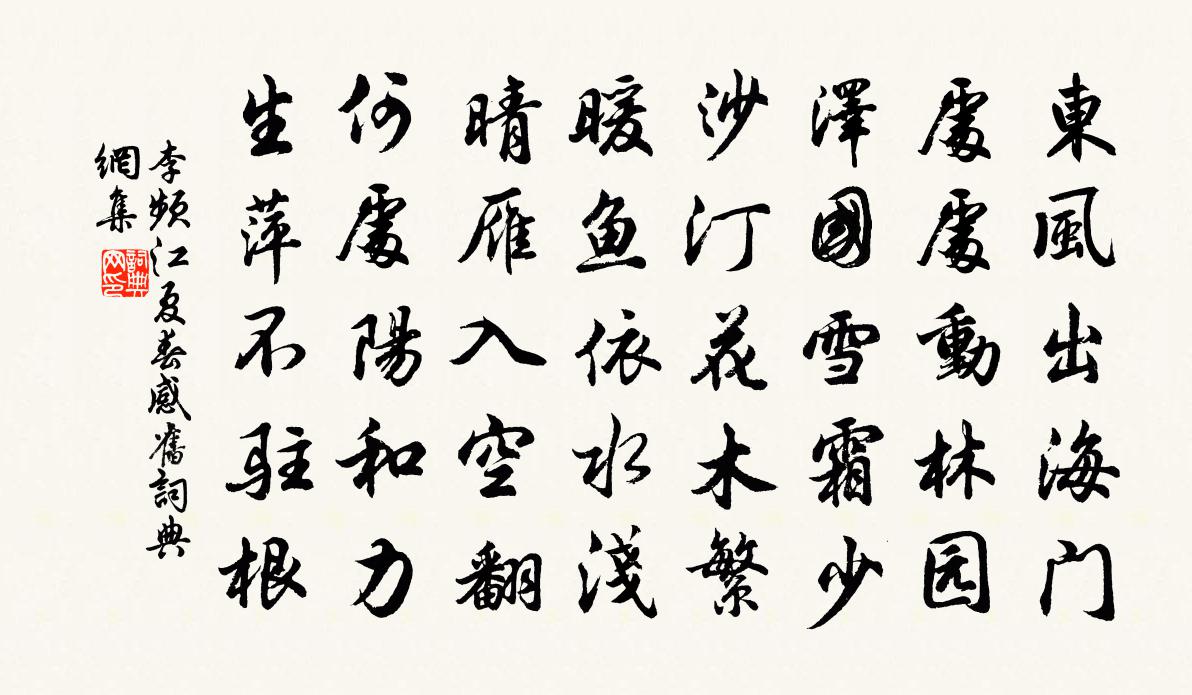 東風出海门
處處動林园
澤國雪霜少
沙汀花木繁
暖鱼依水淺
晴雁入空翻
何處陽和力
生萍不駐根
李频江夏春感舊詞典
網集
詞典
网印